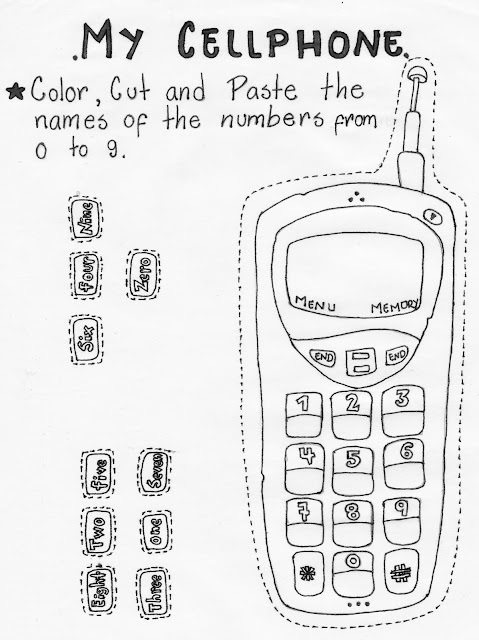 .MY CELLPHONE.
★ Color, Cut and Paste the
names of the numbers from
0 to 9.
Nine
four
Zero
Six
five
Seven
Two
one
Eight
Three
MENU MEMORY
END END
1 2 3
4 5 6
7 8 9
* 0 #